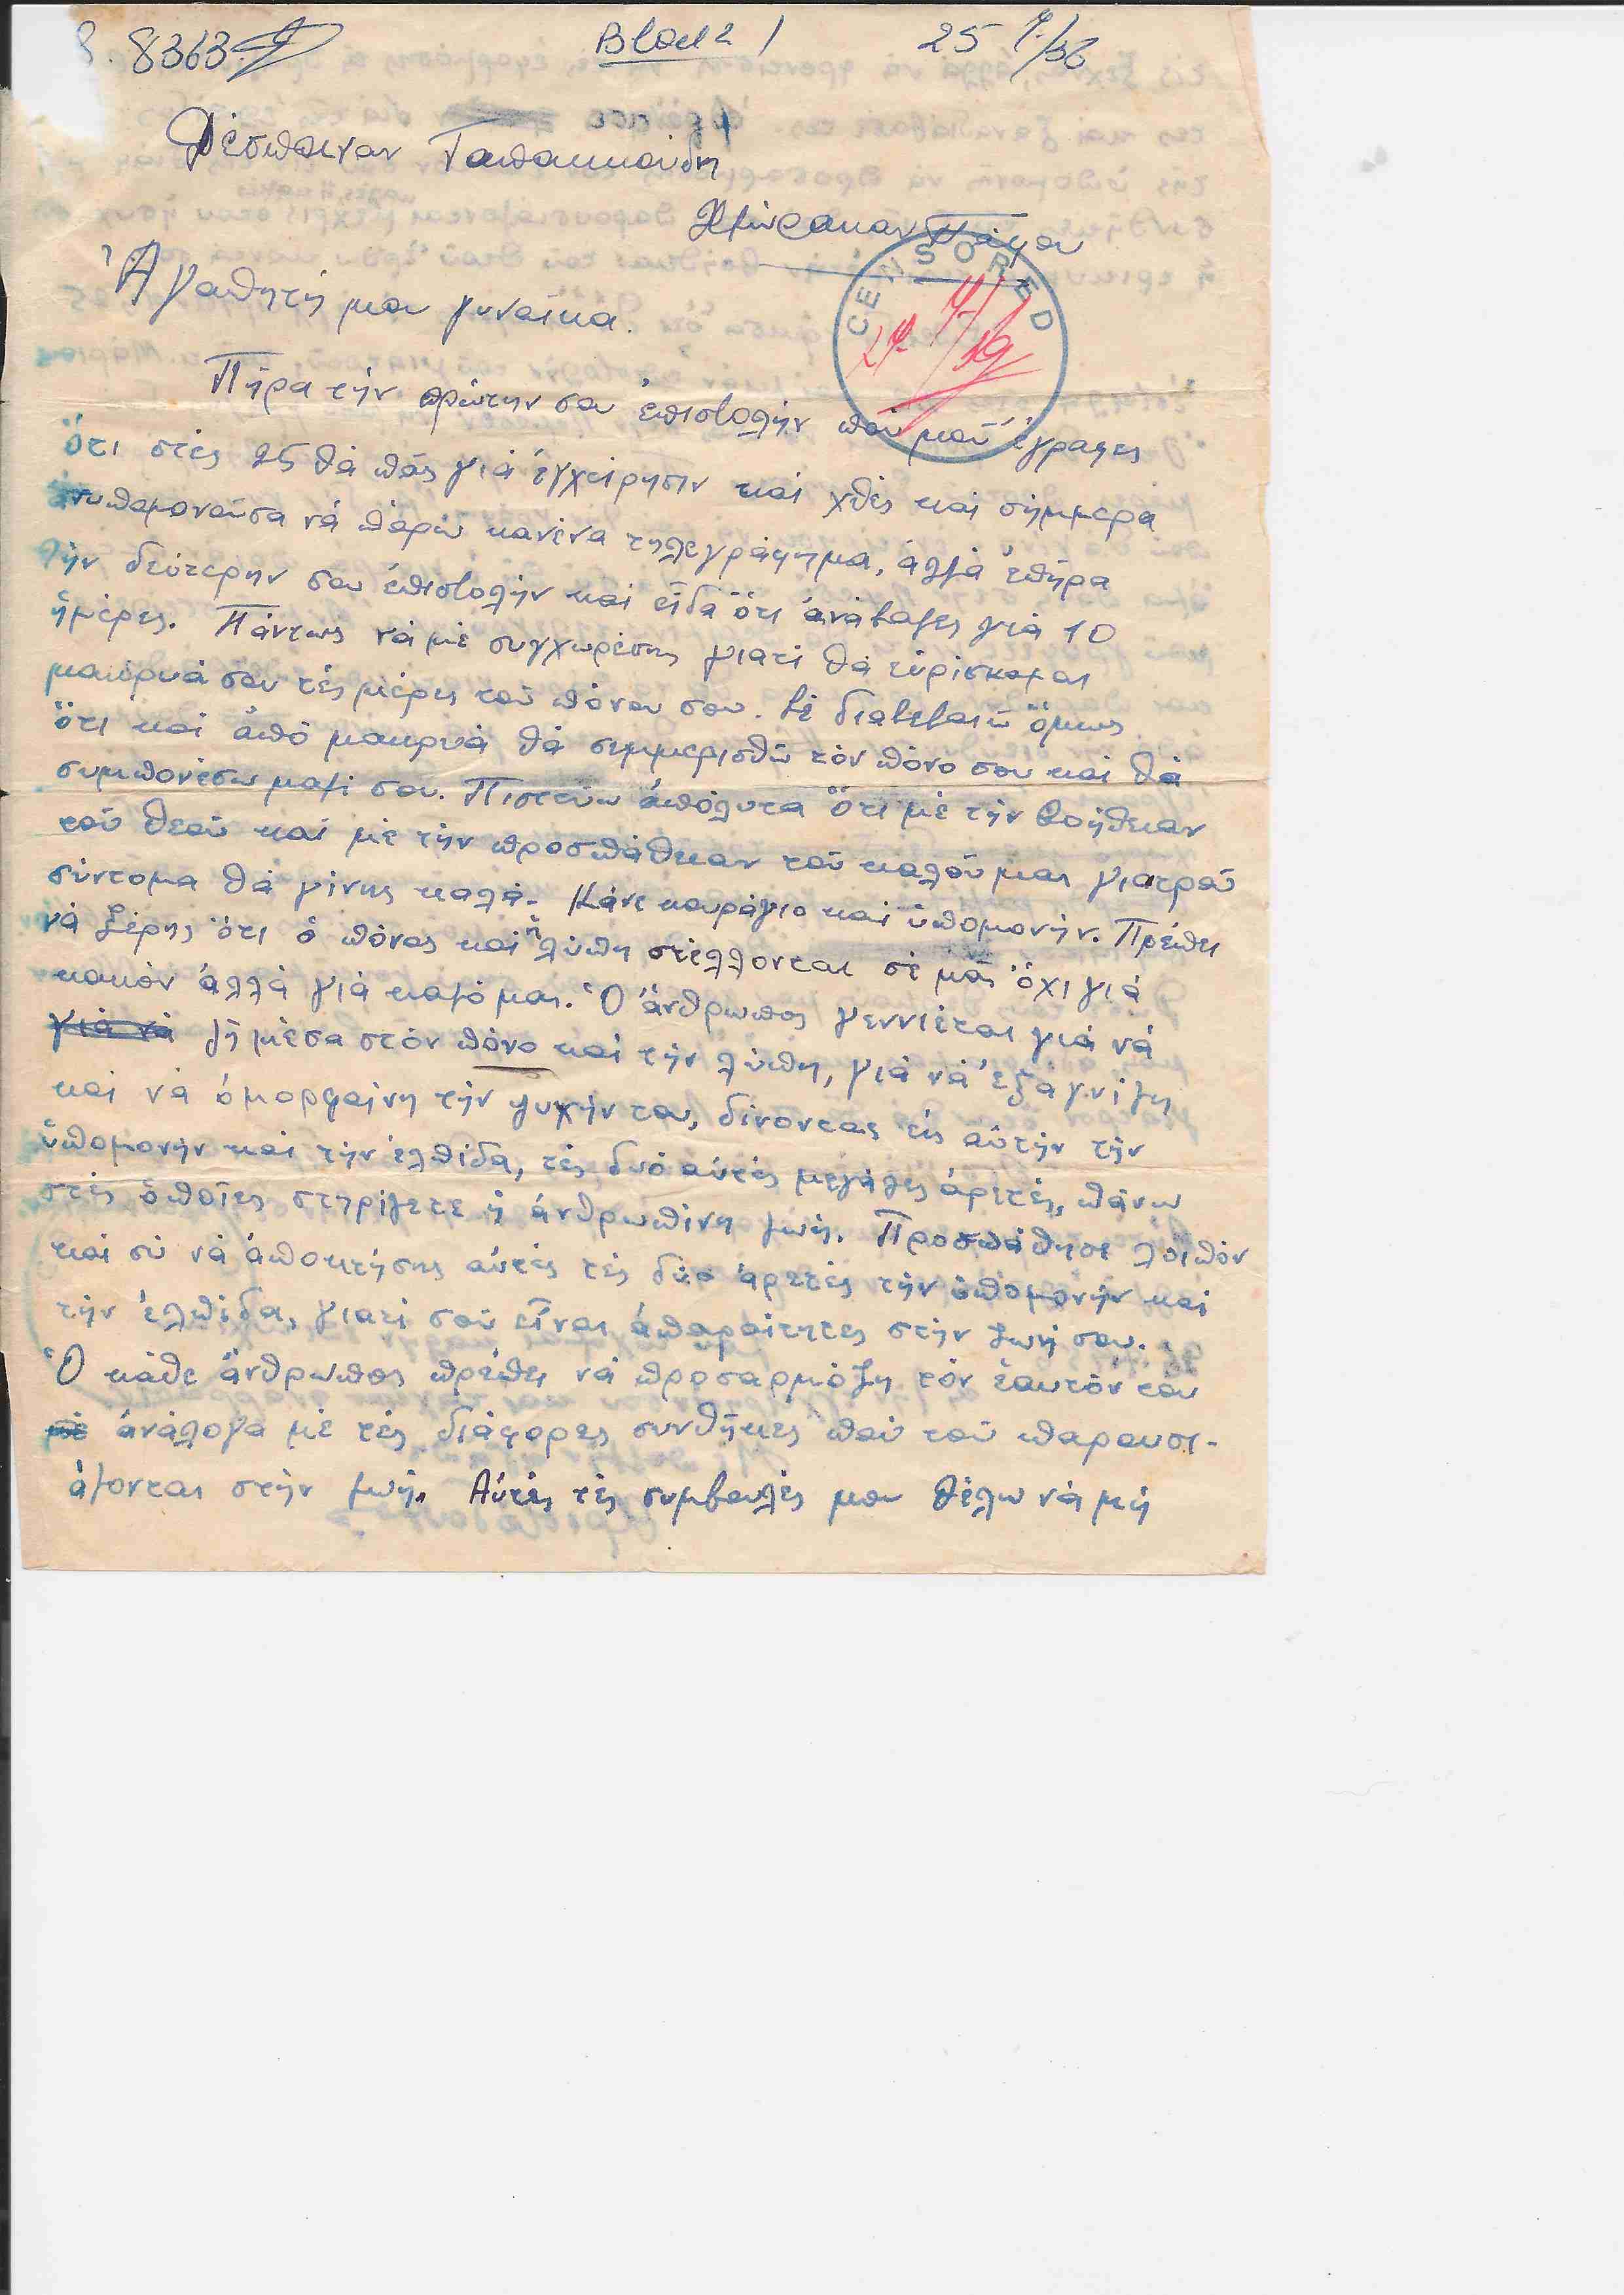 8363
Block 2 1
25
Δέσποιναν Παπακκούδη
Κμώρακαν Πάφου
CENSORED
Ἀγαπητή μου γυναῖκα.
Πῆρα τήν πρώτην σου ἐπιστολήν πού μοῦ ἔγραφες
ὅτι στές 25 θά πᾶς γιά ἐγχείρησιν καί χθές και σήμμερα
νυπομονοῦσα νά πάρω κανένα τηλεγράφημα, ἀλλά ἐπῆρα
τήν δεύτερην σου ἐπιστολήν καί εἶδα ὅτι ἀνάβαλες γιά 10
ἡμέρες. Πάντως νά μέ συγχωρέσης γιατί θά εὑρίσκομαι
μακρυά σου τές μέρες τοῦ πόνου σου. Σέ διαβεβαιῶ ὅμως
ὅτι καί ἀπό μακρυά θά συμμερισθῶ τόν πόνο σου καί θά
συμπονέσω μαζί σου. Πιστεύω ἀπόλυτα ὅτι μέ τήν βοήθειαν
τοῦ Θεοῦ καί μέ τήν προσπάθειαν τοῦ καλοῦ μας γιατροῦ
σύντομα θά γίνης καλά. Κάνε κουράγιο καί ὑπομονήν. Πρέπει
νά ξέρης ὅτι ὁ πόνος καί ἡ λύπη στέλλονται σέ μᾶς ὄχι γιά
κακόν ἀλλά γιά καλό μας. Ὁ ἄνθρωπος γεννιέται γιά νά
γιά νά ζῆ μέσα στόν πόνο καί τήν λύπη, γιά νά ἐξαγνίζη
καί νά ὀμορφαίνη τήν ψυχήν του, δίνοντας εἰς αὐτήν τήν
ὑπομονήν καί τήν ἐλπίδα, τές δυό αὐτές μεγάλες ἀρετές, πάνω
στές ὁποῖες στηρίζετε ἡ ἀνθρωπίνη ζωή. Προσπάθησε λοιπόν
καί σύ νά ἀποκτήσης αὐτές τές δύο ἀρετές τήν ὑπομονήν καί
τήν ἐλπίδα, γιατί σοῦ εἶναι ἀπαραίτητες στήν ζωή σου.
Ὁ κάθε ἄνθρωπος πρέπει νά προσαρμόζη τόν ἑαυτόν του
μέ ἀνάλογα μέ τές διάφορες συνθῆκες πού τοῦ παρουσι-
άζονται στήν ζωή. Αὐτές τές συμβουλές μου θέλω νά μή